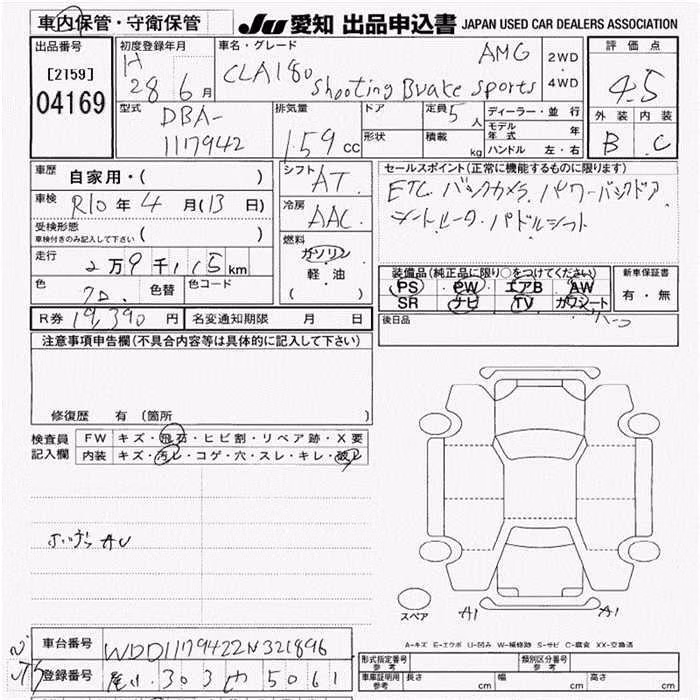 車内保管・守衛保管
JU 愛知 出品申込書 JAPAN USED CAR DEALERS ASSOCIATION
出品番号
[2159]
04169
初度登録年月
H
28 6月
車名・グレード
AMG
CLA180 Shooting Brake sports
2WD
・
4WD
評価点
4.5
外装 内装
B C
型式
DBA-
1117942
排気量
1.59 cc
ドア
形状
定員 5 人
積載 kg
ディーラー・並 行
モデル年式 年
ハンドル 左・右
車歴
自家用・( )
車検 R10年 4月(13日)
受検形態
車検付きのみ記入して下さい ( )
走行 2万9千115km
色 クロ 色替 色コード
シフト AT
冷房 AAC
燃料
ガソリン
軽・油
( )
セールスポイント(正常に機能するものに限ります)
ETC. バックカメラ. パワーバックドア
シートヒーター. パドルシフト
装備品(純正品に限り○をつけてください)
PS PW エアB AW
SR ナビ TV カワシート
ハーフ
新車保証書
有・無
R券 19,390 円 名変通知期限 月 日
後日品
注意事項申告欄(不具合内容等は具体的に記入して下さい)
修復歴 有(箇所 )
検査員
記入欄
FW キズ・飛石・ヒビ割・リペア跡・X要
内装 キズ・汚レ・コゲ・穴・スレ・キレ・破レ
AU
スペア
A1 A1
A-キズ E-エクボ U-凹み W-補修跡 S-サビ C-腐食 XX-交換済
車台番号 WDD1179422N321896
登録番号 尾小 303 や 5061
形式指定番号
参考
類別区分番号
参考
車庫証明用
参考
長さ cm 幅 cm 高さ cm